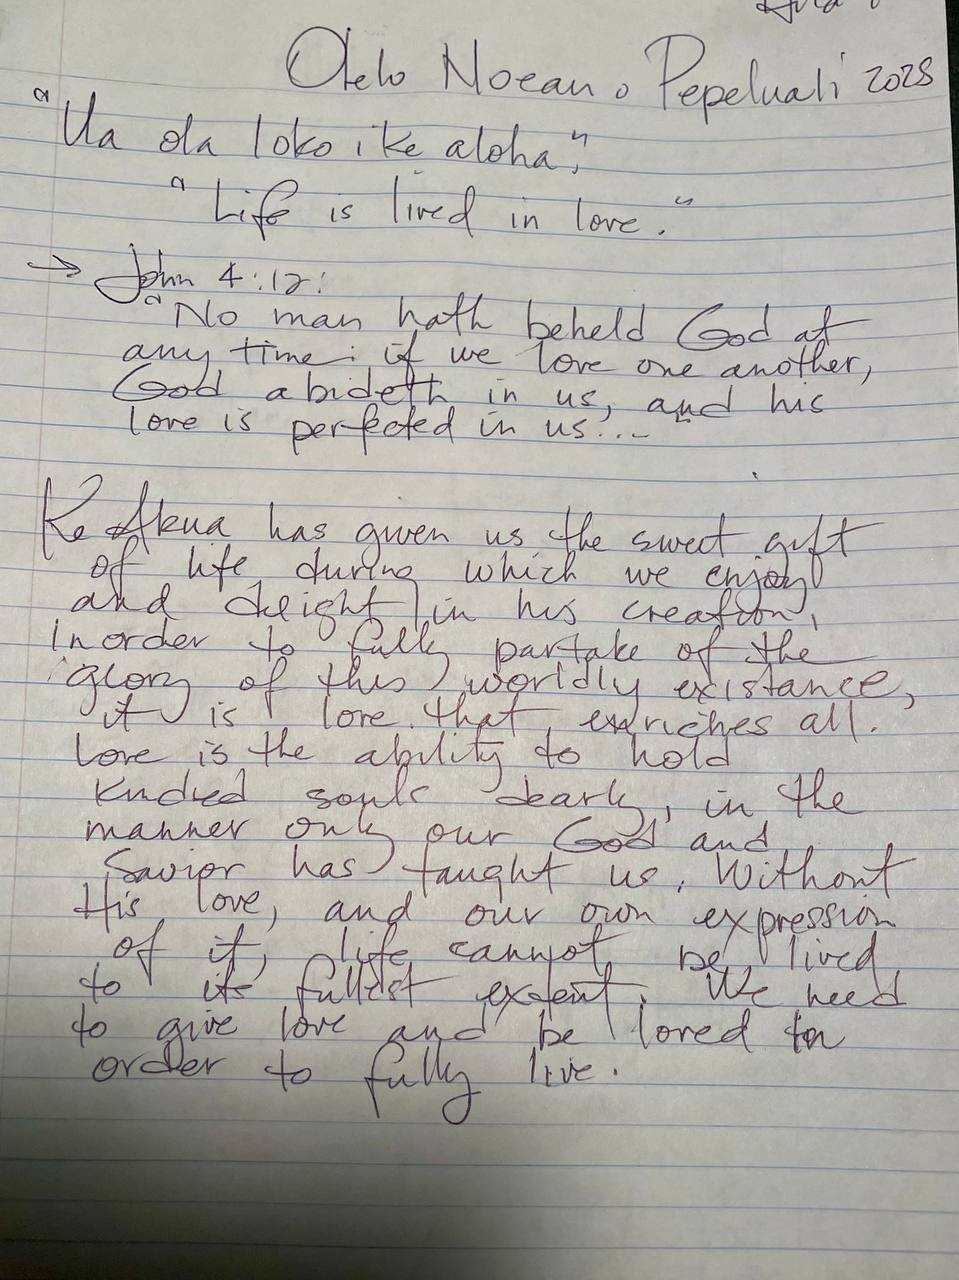 Olelo Noeau o Pepeluali 2025
"Ua ola loko i ke aloha,"
"Life is lived in love."
→ John 4:12:
"No man hath beheld God at
any time: if we love one another,
God abideth in us, and his
love is perfected in us..."
Ke Akua has given us the sweet gift
of life during which we enjoy
and delight in his creation,
In order to fully partake of the
glory of this worldly existance,
it is love that enriches all.
Love is the ability to hold
Kindred souls dearly, in the
manner only our God and
Savior has taught us. Without
His love, and our own expression
of it, life cannot be lived
to its fullest extent. We need
to give love and be loved in
order to fully live.